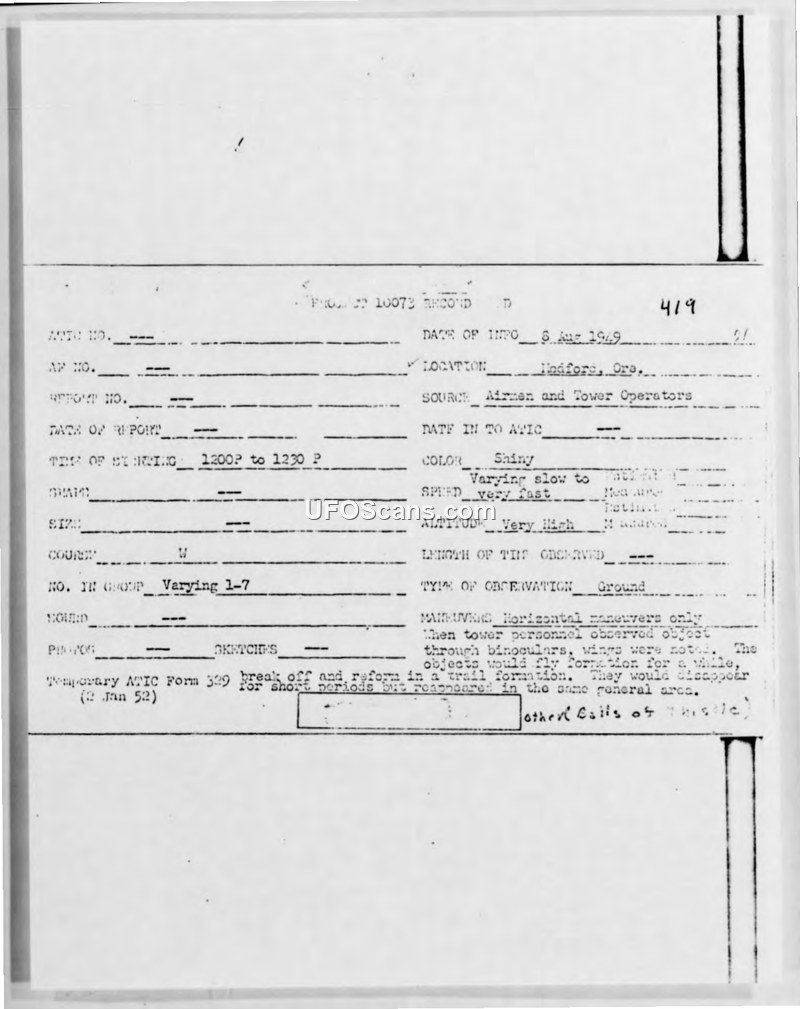 10073 RECORD
419
ATIC NO. ---
DATE OF INFO 8 Aug 1949
AF NO. ---
LOCATION Medford, Ore.
REPORT NO. ---
SOURCE Airmen and Tower Operators
DATE OF REPORT ---
DATE IN TO ATIC ---
TIME OF SIGHTING 1200P to 1230 P
COLOR Shiny
SHAPE ---
SPEED Varying slow to very fast
UFOScans.com
SIZE ---
ALTITUDE Very High
COURSE W
LENGTH OF TIME OBSERVED ---
NO. IN GROUP Varying 1-7
TYPE OF OBSERVATION Ground
SOUND ---
MANEUVERS Horizontal maneuvers only
When tower personnel observed object
PHOTOS --- SKETCHES ---
through binoculars, wings were noted. The
objects would fly formation for a while,
Temporary ATIC Form 329
break off and reform in a trail formation. They would disappear
(2 Jan 52)
for short periods but reappeared in the same general area.
other( Balls of